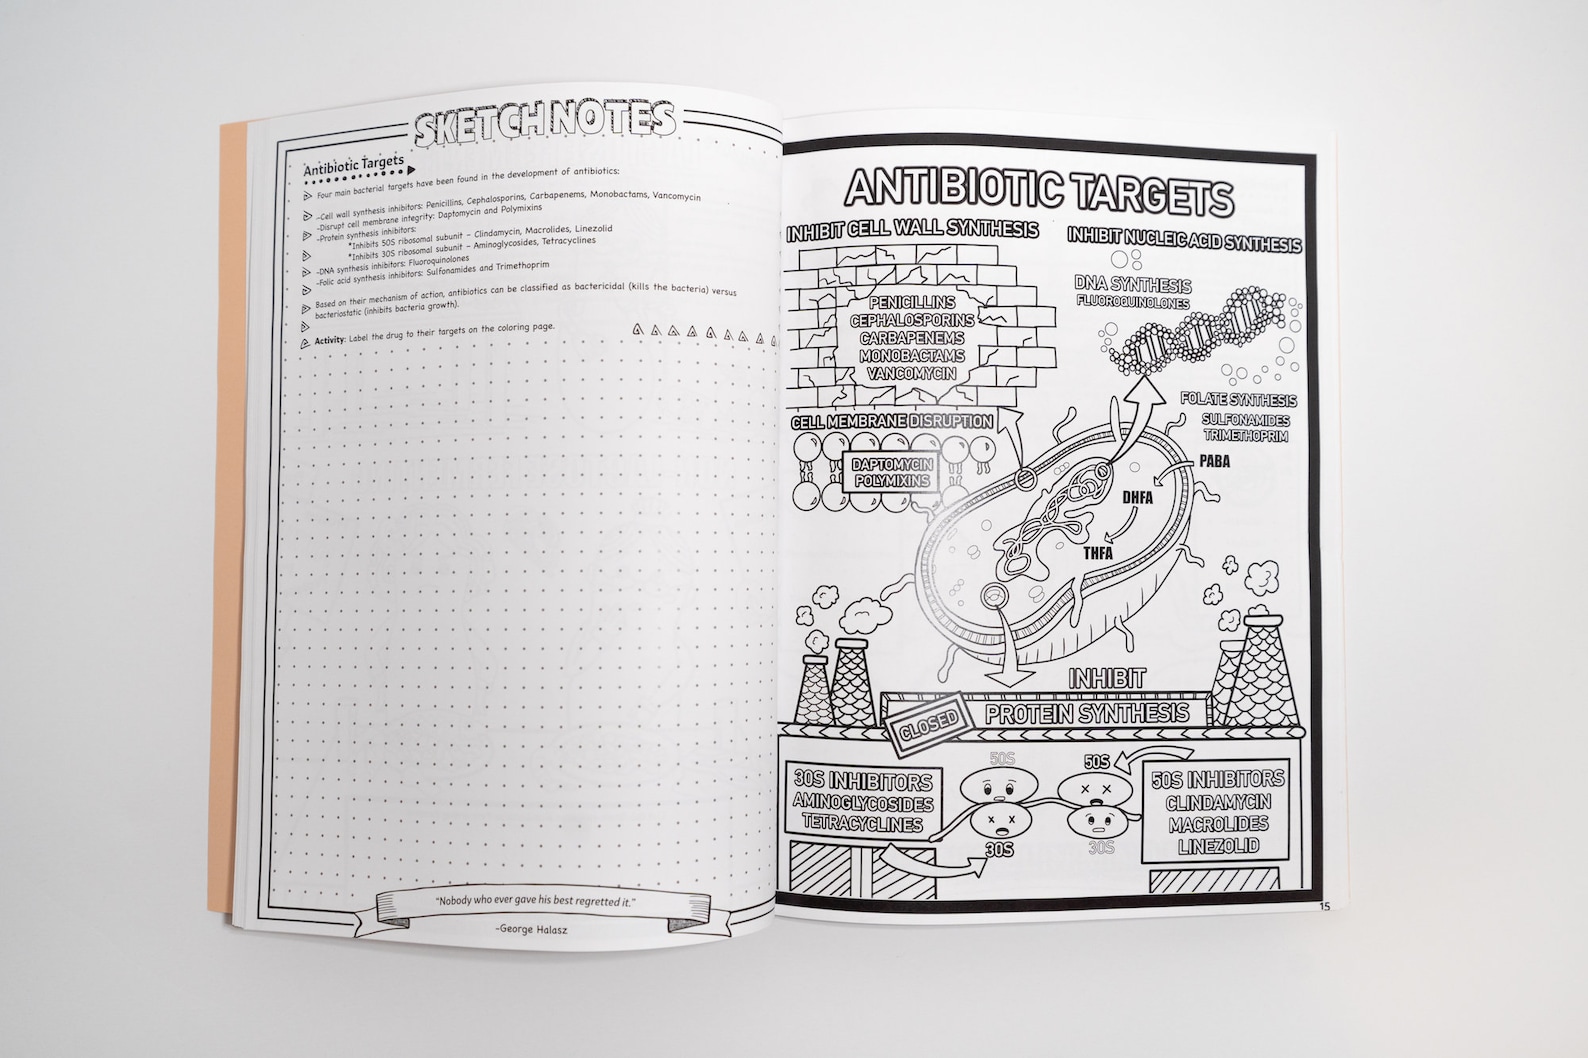 SKETCH NOTES
Antibiotic Targets
Four main bacterial targets have been found in the development of antibiotics:
-Cell wall synthesis inhibitors: Penicillins, Cephalosporins, Carbapenems, Monobactams, Vancomycin
-Disrupt cell membrane integrity: Daptomycin and Polymixins
-Protein synthesis inhibitors:
*Inhibits 50S ribosomal subunit – Clindamycin, Macrolides, Linezolid
*Inhibits 30S ribosomal subunit – Aminoglycosides, Tetracyclines
-DNA synthesis inhibitors: Fluoroquinolones
-Folic acid synthesis inhibitors: Sulfonamides and Trimethoprim
Based on their mechanism of action, antibiotics can be classified as bactericidal (kills the bacteria) versus
bacteriostatic (inhibits bacteria growth).
Activity: Label the drug to their targets on the coloring page.
"Nobody who ever gave his best regretted it."
-George Halasz
ANTIBIOTIC TARGETS
INHIBIT CELL WALL SYNTHESIS
PENICILLINS
CEPHALOSPORINS
CARBAPENEMS
MONOBACTAMS
VANCOMYCIN
CELL MEMBRANE DISRUPTION
DAPTOMYCIN
POLYMIXINS
INHIBIT NUCLEIC ACID SYNTHESIS
DNA SYNTHESIS
FLUOROQUINOLONES
FOLATE SYNTHESIS
SULFONAMIDES
TRIMETHOPRIM
PABA
DHFA
THFA
INHIBIT
PROTEIN SYNTHESIS
CLOSED
30S INHIBITORS
AMINOGLYCOSIDES
TETRACYCLINES
50S
30S
50S
30S
50S INHIBITORS
CLINDAMYCIN
MACROLIDES
LINEZOLID
15